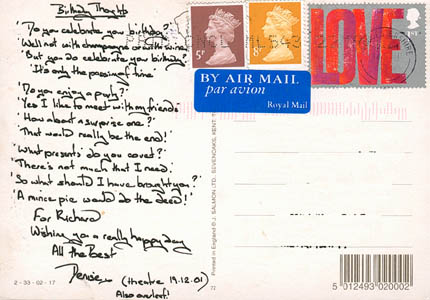 Birthday Thoughts
'Do you celebrate your birthday?'
'Well not with champagne or with wine'
'But you do celebrate your birthday'
'It's only the passing of time'
'Do you enjoy a party?'
'Yes I like to meet with my friends'
'How about a surprise one?'
'That would really be the end!'
'What presents do you covet?'
'There's not much that I need'
'So what should I have brought you?'
'A mince pie would do the deed!'
For Richard
Wishing you a really happy day
All the Best
Denise
(theatre 19.12.01)
Also overleaf!
2 - 33 - 02 - 17
Printed in England © J. SALMON LTD., SEVENOAKS, KENT.
72
5p
8p
1st
LOVE
BY AIR MAIL
par avion
Royal Mail
5 012493 020002